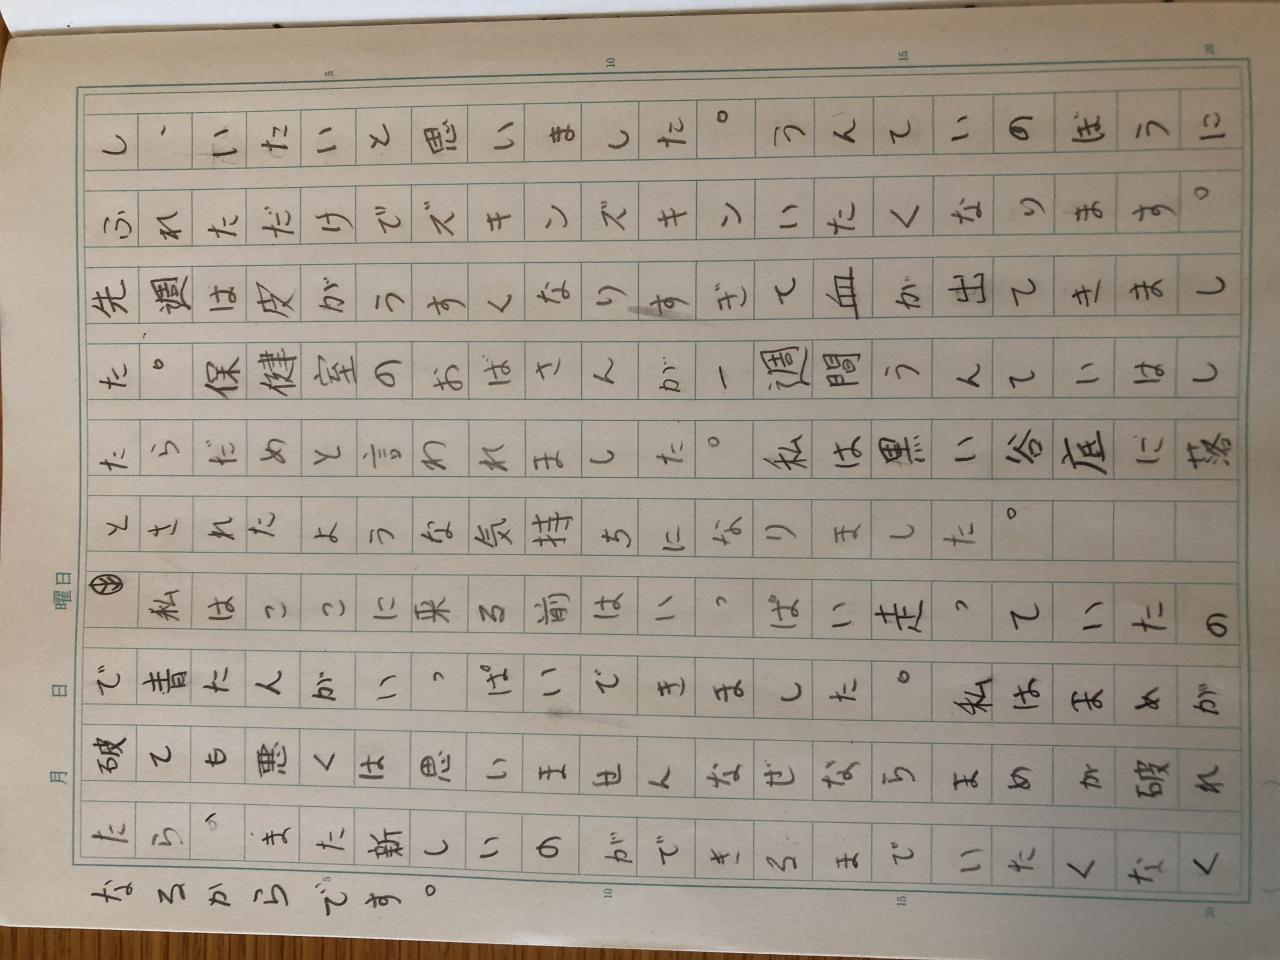 し、いたいと思いました。うんていのぼうに
ふれただけでズキンズキンいたくなります。
先週は皮がうすくなりすぎて血が出てきまし
た。保健室のおばさんが一週間うんていはし
たらだめと言われました。私は黒い谷底に落
とされたような気持ちになりました。
私はここに来る前はいっぱい走っていたの
で青たんがいっぱいできました。私はまめが
破ても悪くは思いませんなぜならまめが破れ
たら、また新しいのができるまでいたくなく
なるからです。
月 日 曜日
5 10 15 20
5 10 15 20